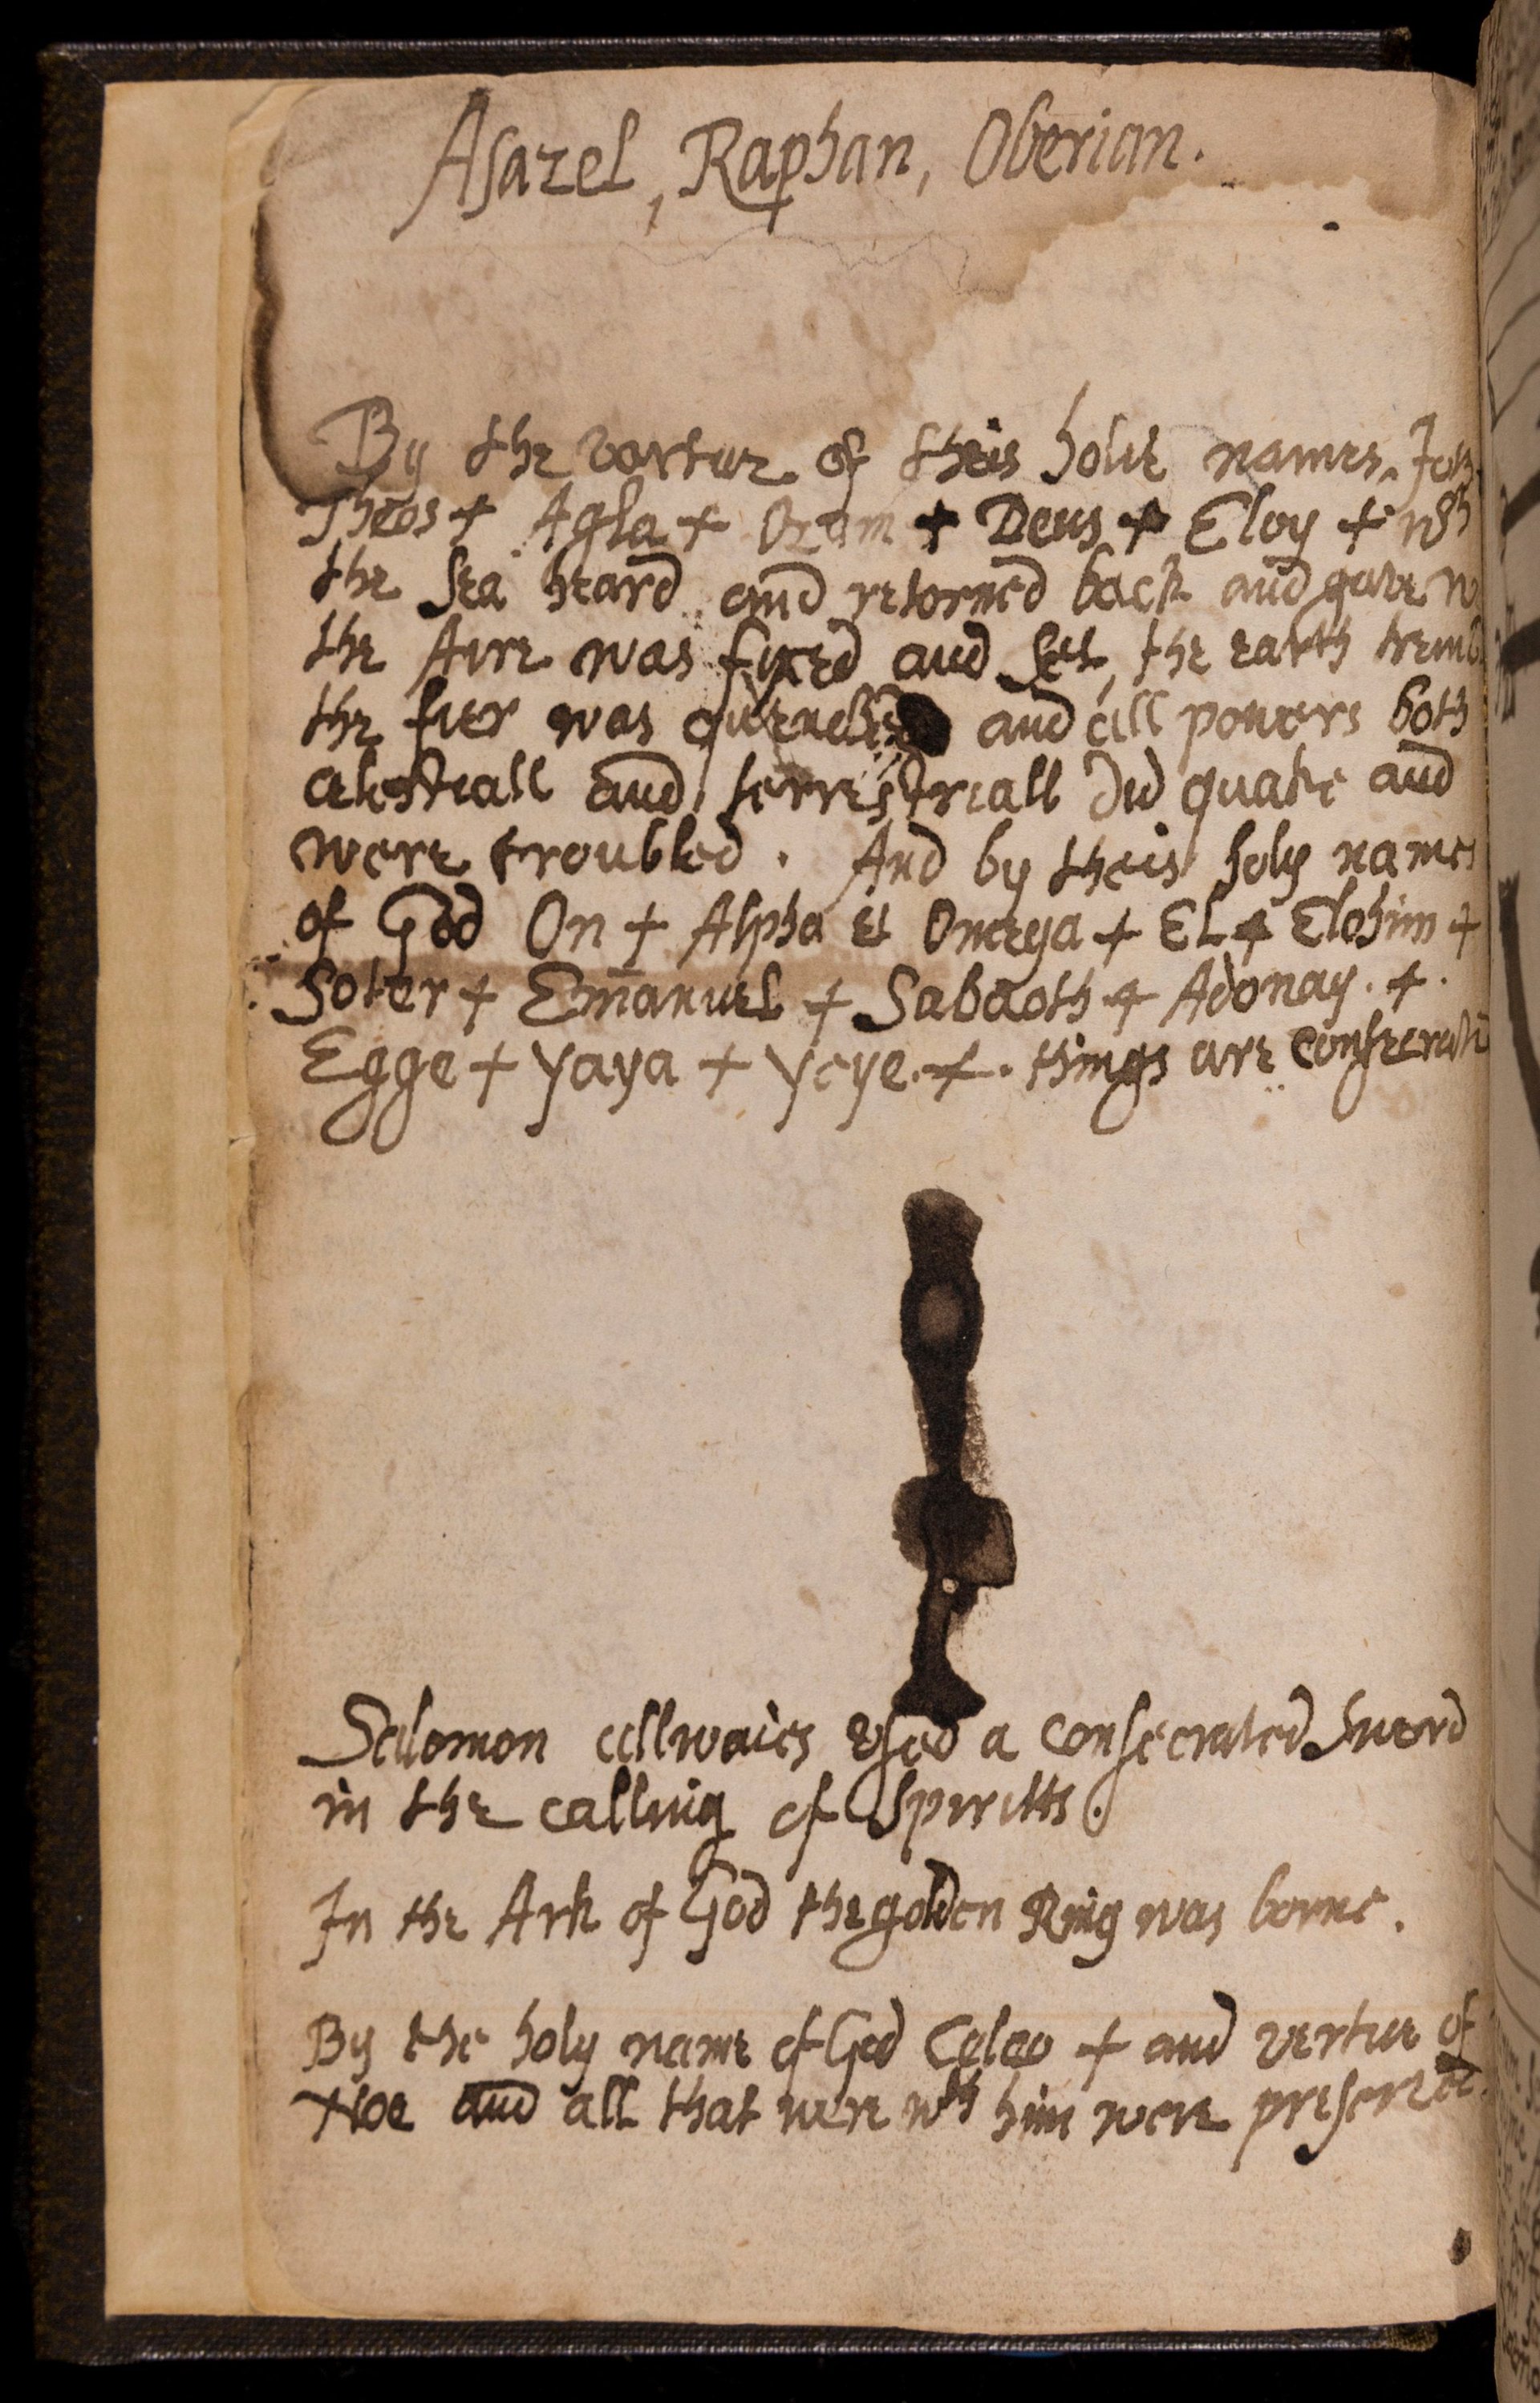 Asazel, Raphan, Oberian.
By the vartue of theis holie names,
Theos + Agla + Oram + Deus + Eloy + wch
the sea heard and retorned back and gave
the Aire was fixed and set, the earth
the fier was quenched and all powers both
celestiall and terrestriall did quake and
were troubled. And by theis holy names
of God On + Alpha et Omega + EL + Elohim +
Soter + Emanuel + Sabaoth + Adonay. +.
Egge + yaya + yeye. +. things are consecrated
Salomon allwaies vsed a consecrated sword
in the calling of spiritts.
In the Ark of God the golden Ring was borne.
By the holy name of God + and vertue of
Noe and all that were wth him were preserved.